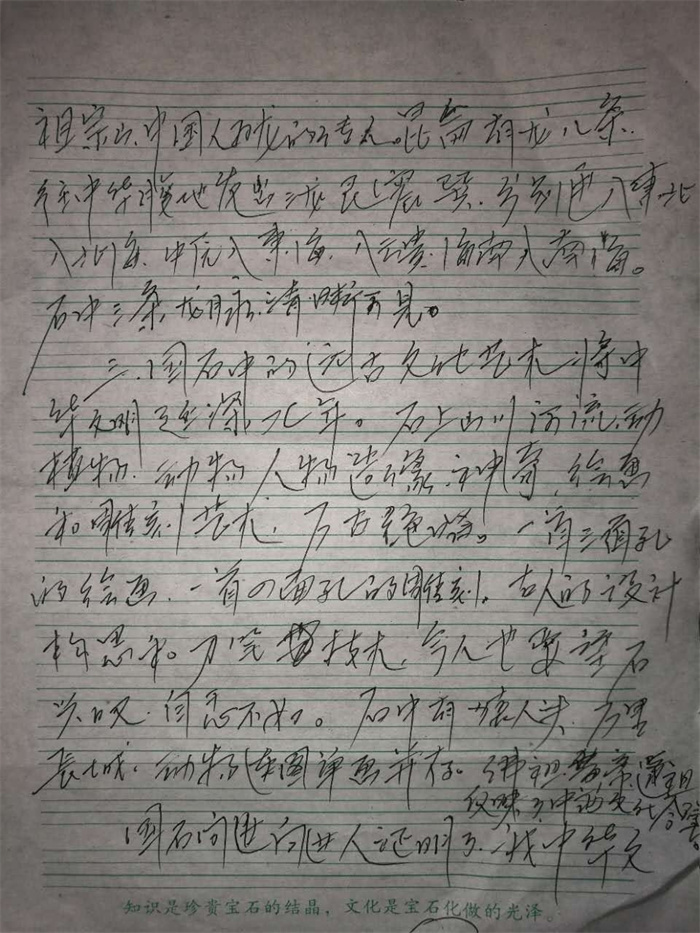 祖宗山、中国人为龙的传人。昆仑有龙八条、
往中华腹地发出三龙
入北海、中位入东海、入云贵、海南入南海。
石中三条龙脉、清晰可见。
三、国石中的远古文化艺术、将中
华文明延深几年。石上山川河流、动
植物、动物人物造像、神奇、绘画
和雕刻艺术、万古绝唱。一首三面孔
的绘画、一首四面孔的雕刻。古人的设计
构思和刀笔技术、今人也要望石
兴叹、自愧不如。石中有猿人头、万里
长城、动物连图单画并存。佛祖黄帝
国石问世向世人证明了、我中华文
知识是珍贵宝石的结晶，文化是宝石化做的光泽。